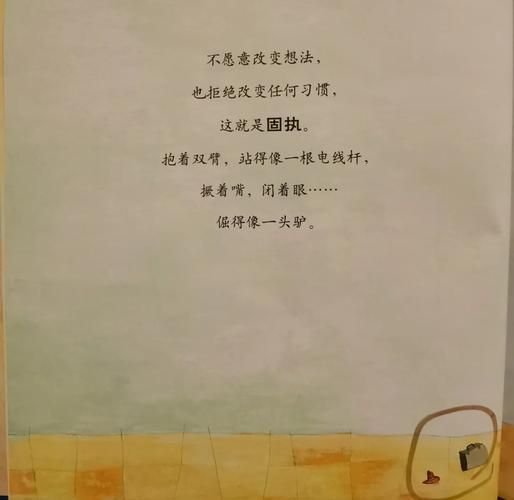 不愿意改变想法，
也拒绝改变任何习惯，
这就是固执。
抱着双臂，站得像一根电线杆，
撅着嘴，闭着眼……
倔得像一头驴。